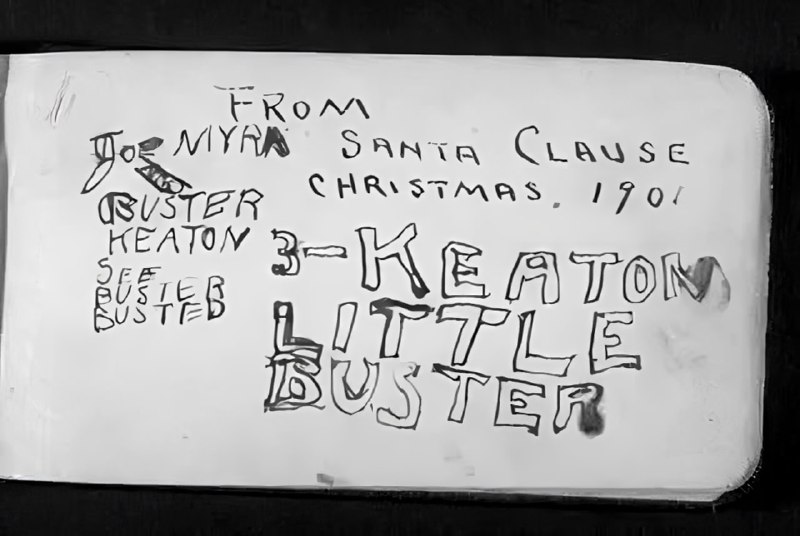 FROM
SANTA CLAUSE
CHRISTMAS. 1901
JOE
MYRA
BUSTER
KEATON
SEE
BUSTER
BUSTED
3-KEATON
LITTLE
BUSTER